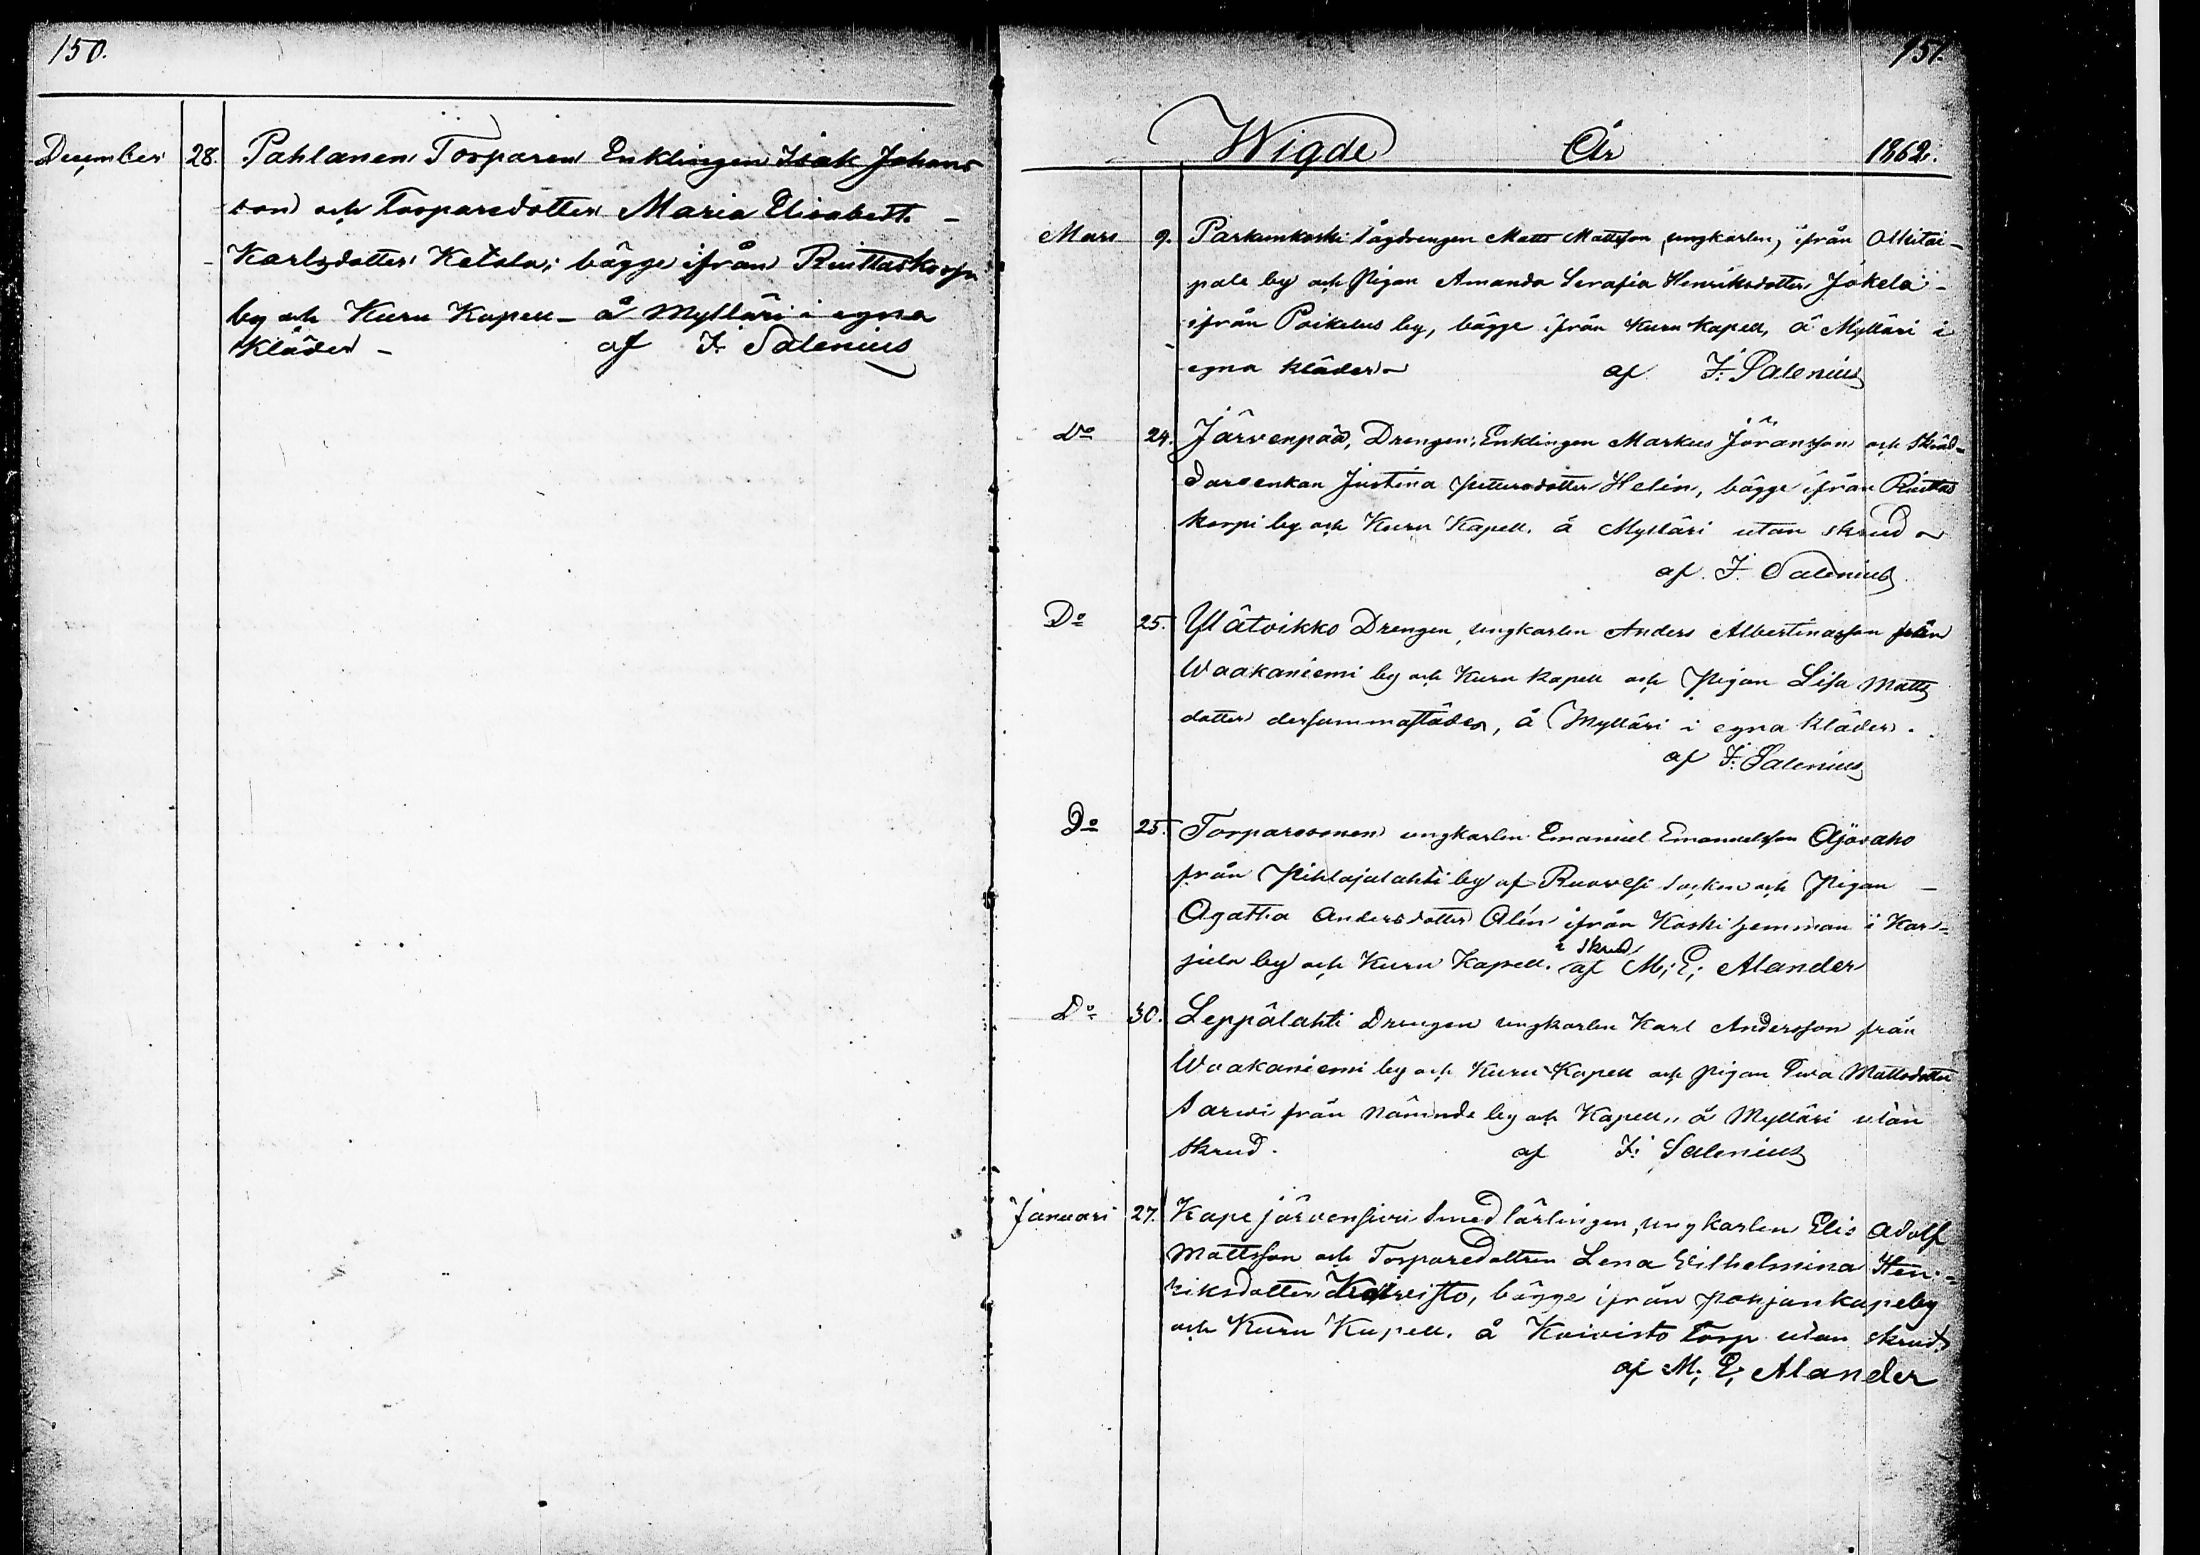 150.
December 28. Pahlanen Torparen Enklingen Isak Johans
son och Torparedotter Maria Elisabeth -
Karlsdotter Ketola; bägge ifrån Riuttaskorpi
by och Kuru Kapell - å Mylläri i egna
kläder - af F. Salenius
151.
Wigde År 1862.
Mars 9. Parkunkoski Sågdrengen Matts Mattsson, ungkarlen, ifrån Olkitai-
pale by och Pigan Amanda Serafia Henriksdotter Jokela -
ifrån Poikelus by, bägge ifrån Kuru Kapell, å Mylläri i
egna kläder - af F. Salenius
Do 24. Järvenpää, Drengen, Enklingen Markus Jöransson och Skräd-
dareenkan Justina Pettersdotter Helin, bägge ifrån Riuttas
korpi by och Kuru Kapell. å Mylläri utan skrud -
af. F. Salenius
Do 25. Ylätoikko Drengen, ungkarlen Anders Albertinasson från
Waakaniemi by och Kuru Kapell och Pigan Lisa Matts
dotter dersammastädes, å Mylläri i egna kläder.
af F. Salenius
Do 25. Torparesonen ungkarlen Emanuel Emanuelsson Ajoraho
från Pihlajalahti by af Ruovesi socken och Pigan -
Agatha Andersdotter Alén ifrån Koski hemman i Kar-
i skrud
jula by och Kuru Kapell. af M; E; Alander
Do 30. Leppälahti Drengen ungkarlen Karl Andersson från
Waakaniemi by och Kuru Kapell och Pigan Ewa Mattsdotter
Sarwi från nämnde by och Kapell, å Mylläri utan
skrud. af F. Salenius
Januari 27. Kapejärvensivu Smedlärlingen, ungkarlen Elis Adolf
Mattsson och Torparedottren Lena Wilhelmina Hen-
riksdotter Koivisto, bägge ifrån Pohjankapeby
och Kuru Kapell. å Koivisto Torp utan skrud.
af M; E; Alander